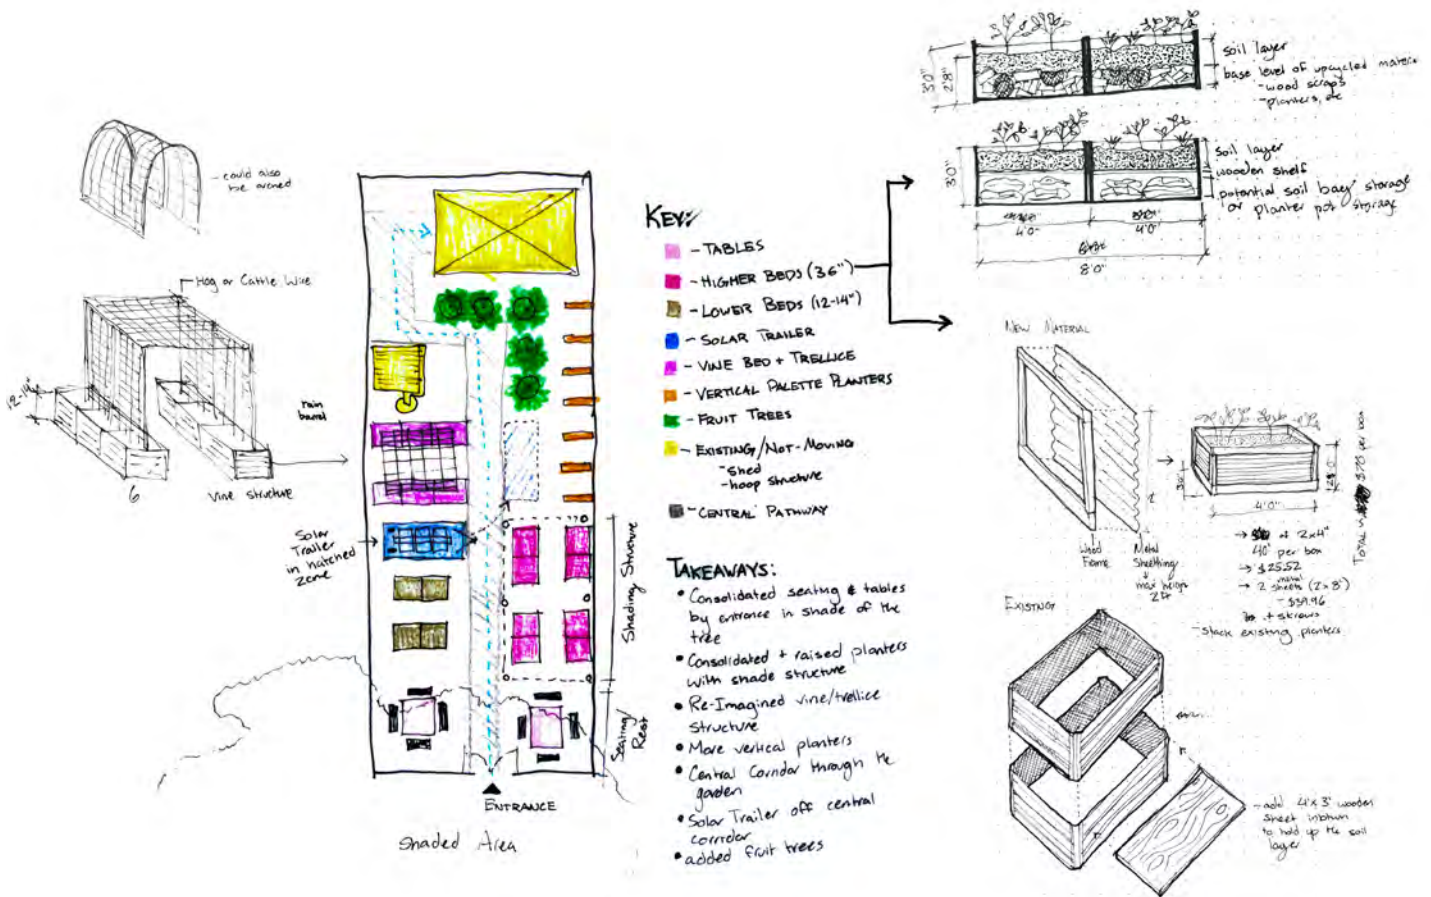 - could also
be arched
Hog or Cattle Wire
12-14"
6
Vine Structure
rain
barrel
Solar
Trailer
in hatched
zone
Shading Structure
Seating/
Rest
ENTRANCE
Shaded Area
KEY:
- TABLES
- HIGHER BEDS (36")
- LOWER BEDS (12-14")
- SOLAR TRAILER
- VINE BED + TRELLICE
- VERTICAL PALETTE PLANTERS
- FRUIT TREES
- EXISTING/NOT-MOVING
- shed
- hoop structure
- CENTRAL PATHWAY
TAKEAWAYS:
• Consolidated seating & tables
by entrance in shade of the
tree
• Consolidated + raised planters
with shade structure
• Re-Imagined vine/trellice
structure
• More vertical planters
• Central Corridor through the
garden
• Solar Trailer off central
corridor
• added fruit trees
3'0"
2'8"
soil layer
base level of upcycled material
- wood scraps
- planters, etc
3'0"
soil layer
wooden shelf
potential soil bag storage
or planter pot storage
4'0"
4'0"
8'0"
NEW MATERIAL
Wood
Frame
Metal
Sheathing
max height
2ft
4'0"
→ of 2x4"
40" per box
→ $25.52
→ 2 metal sheets (2x8')
- $39.96
+ screws
- Stack existing planters
per box
EXISTING
- add 4'x3' wooden
sheet inbtwn
to hold up the soil
layer